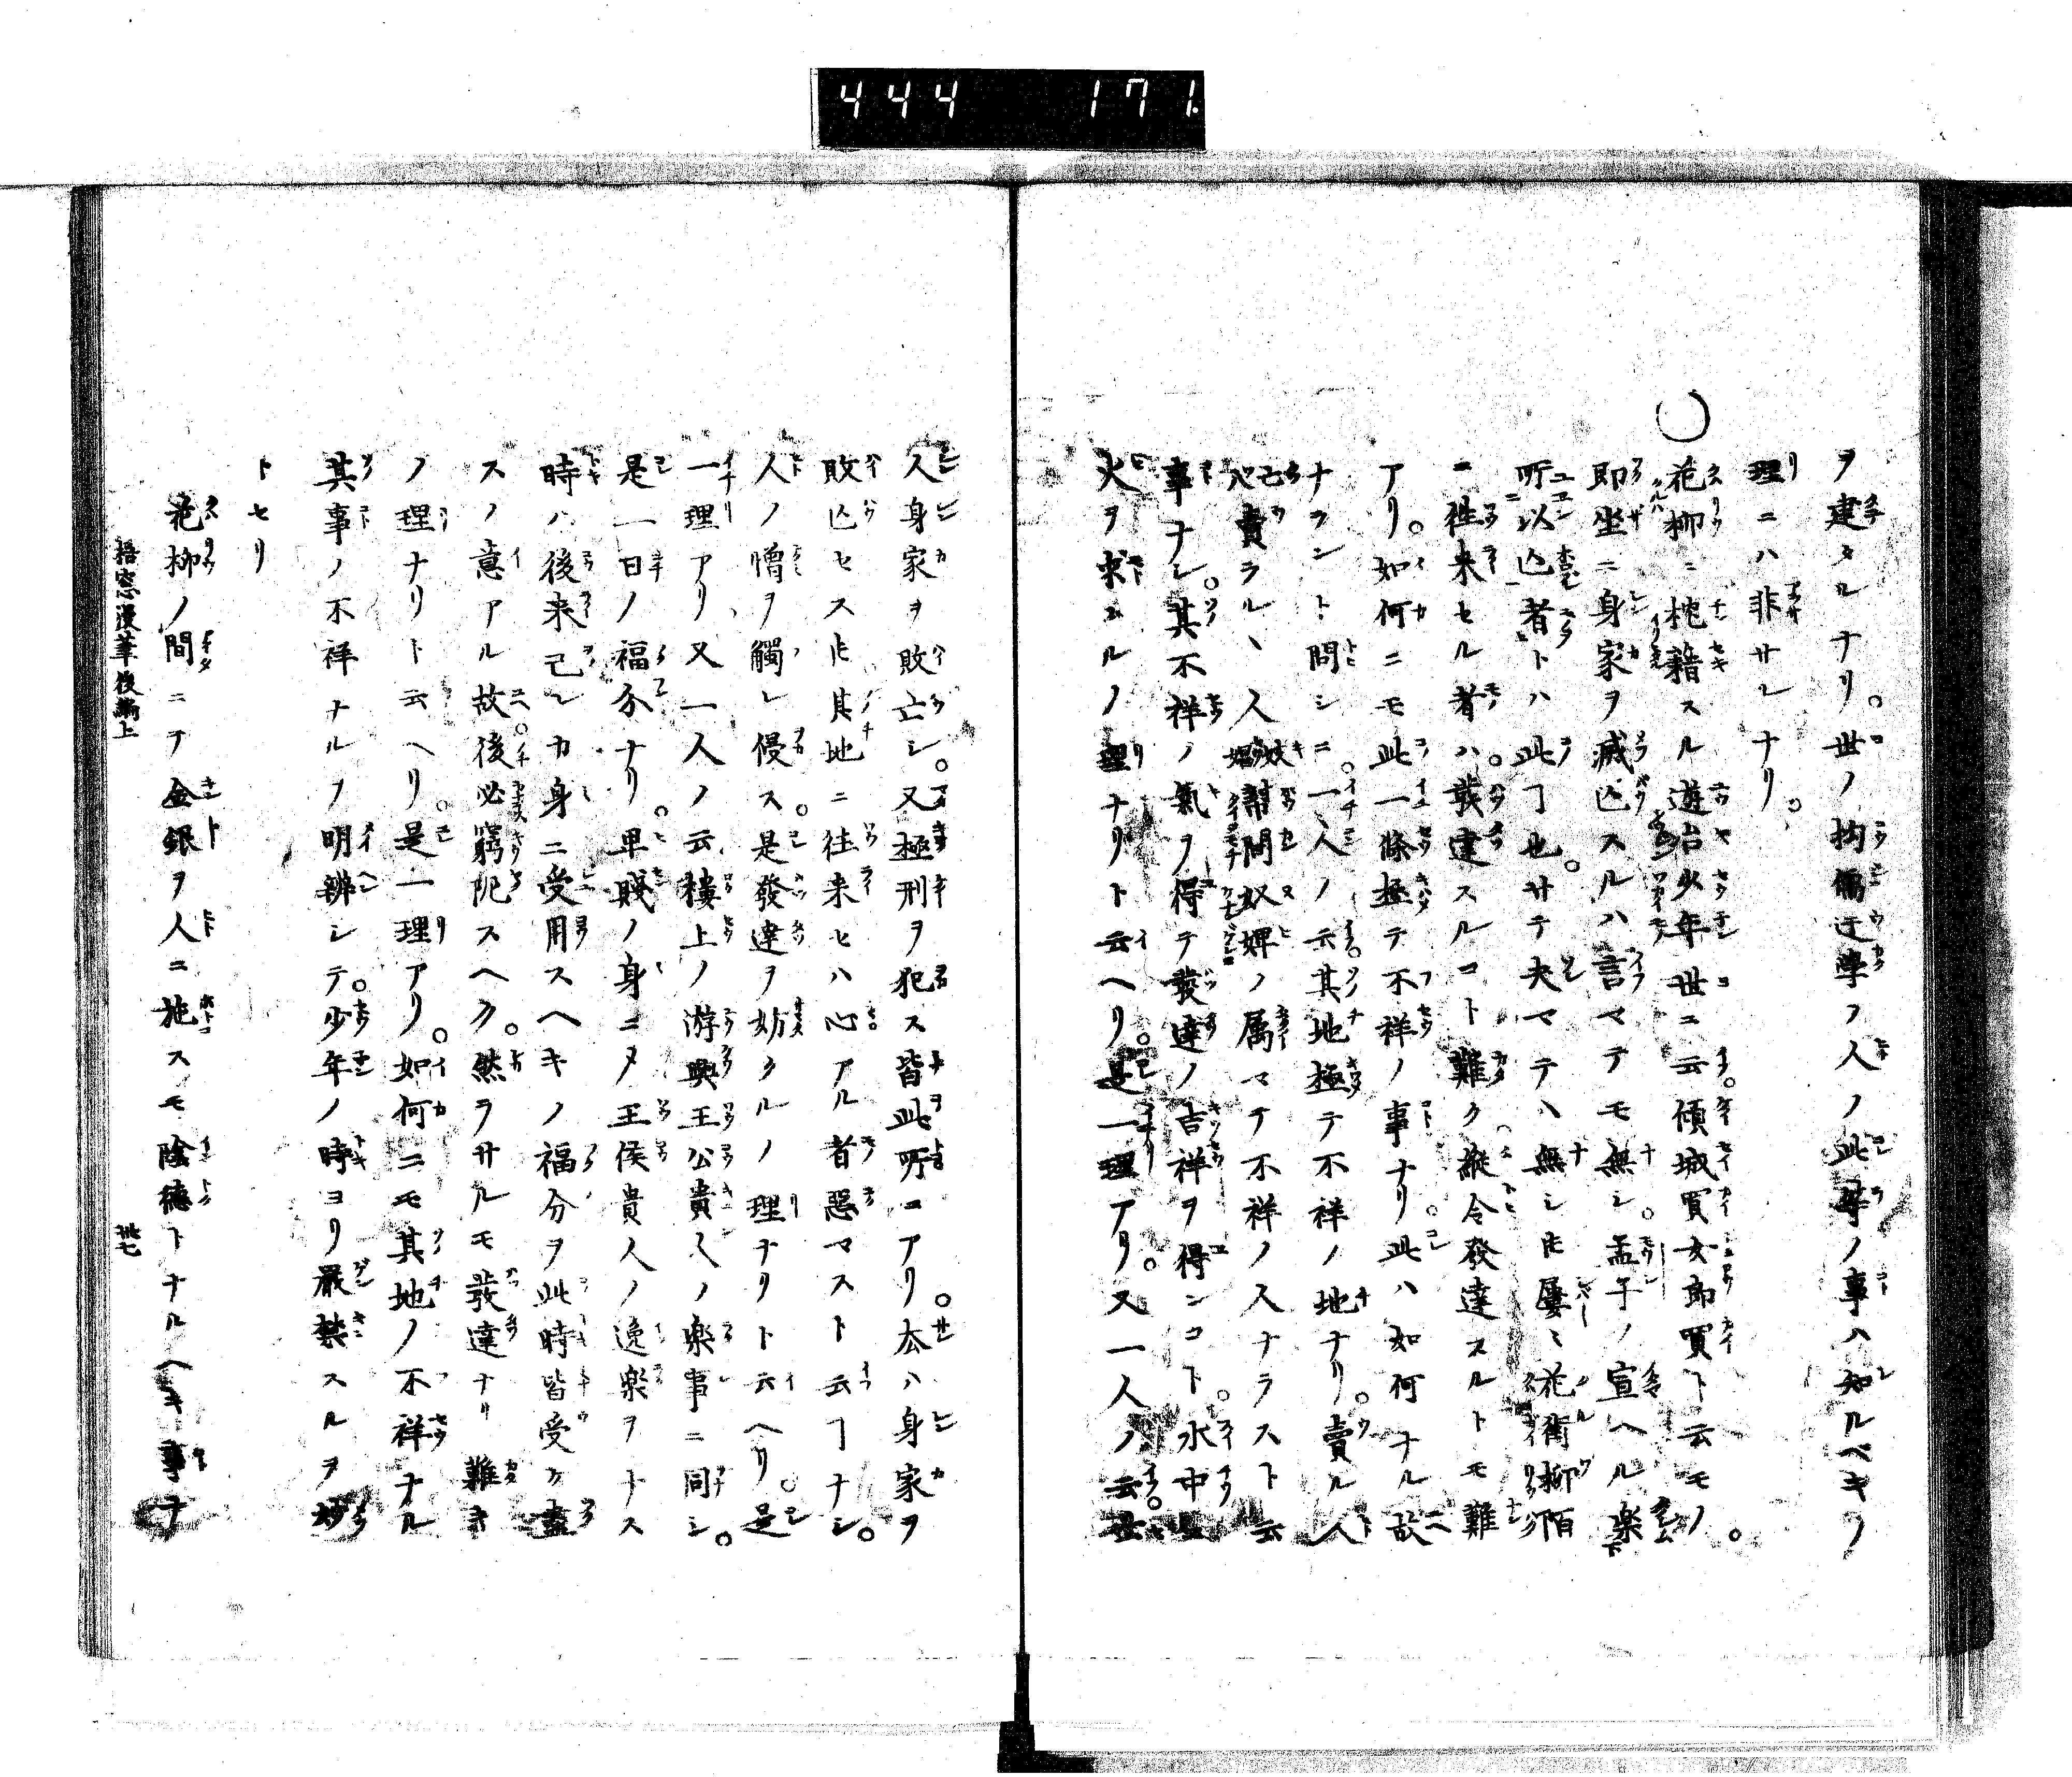 444 171.
ヲ建タルナリ。世ノ拘儒迂學ノ人ノ此等ノ事ハ知ルベキノ
理ニハ非サレナリ。
花柳ニ枕藉スル遊冶少年世ニ云傾城買女郎買ト云モノ。
即坐ニ身家ヲ滅亡スルハ言マデモ無シ。孟子ノ宣ヘル楽
所以亡者トハ此ヿ也。サテ夫マテハ無シ𪜈屢〻花街柳陌
ニ徃来セル者ハ。發達スルコト難ク縱令發達スルトモ難
アリ。如何ニモ此一條極テ不祥ノ事ナリ。此ハ如何ナル故
ナラント問シニ。一人ノ云。其地極テ不祥ノ地ナリ。賣ル人
賣ラルヽ人幇間奴婢ノ属マテ不祥ノ人ナラスト云
事ナシ。其不祥ノ氣ヲ得テ發達ノ吉祥ヲ得ンコト。水中ニ
火ヲ求ムルノ理ナリト云ヘリ。是一理アリ。又一人ノ云。世
人身家ヲ敗亡シ。又極刑ヲ犯ス皆此所ニアリ。太ハ身家ヲ
敗亡セス𪜈其地ニ往来セハ心アル者惡マスト云ヿナシ。
人ノ憎ヲ觸レ侵ス。是發達ヲ妨クルノ理ナリト云ヘリ。是
一理アリ又一人ノ云樓上ノ游興王公貴人ノ楽事ニ同シ。
是一日ノ福分ナリ。卑賤ノ身ニメ王侯貴人ノ逸楽ヲナス
時ハ後来己レカ身ニ受用スヘキノ福分ヲ此時皆受ケ盡
スノ意アル故ニ。後必窮阨スヘク。然ラサルモ發達ナリ難キ
ノ理ナリト云ヘリ。是一理アリ。如何ニモ其地ノ不祥ナル
其事ノ不祥ナルヲ明辨シテ。少年ノ時ヨリ嚴禁スルヲ妙
トセリ
花柳ノ間ニテ金銀ヲ人ニ施スモ陰德トナルヘキ事ナ
梧窓漫筆後編上 卅七